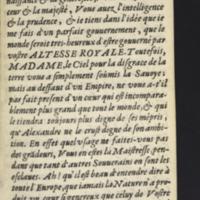 ceur & la majesté, Vous auez l'intelligence
& la prudence, & ie tiens dans l'idée que ie
me fais d'un parfait gouuernement, que le
monde seroit tres-heureux d'estre gouuerné par
vostre ALTESSE ROYALE. Toutefois,
MADAME, le Ciel pour la disgrace de la
terre vous a simplement soûmis la Sauoye:
mais au deffaut d'un Empire, ne vous a-t-il
pas fait present d'un cœur qui est incomparable-
blement plus grand que tout le monde, & qui
le tiendra toujours plus digne de ses mépris,
qu'Alexandre ne le crust digne de son ambi-
tion. En effet quel vsage ne faites-vous pas
des grādeurs, Vous en estes la Maistresse, pen-
dant que tant d'autres Souuerains en sont les
esclaues. Ah! qu'il est beau d'entendre dire à
toute l'Europe, que iamais la Nature n'a pro-
duit vn cœur si genereux que celuy de Vostre